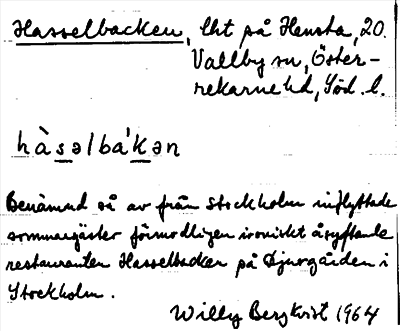 Hasselbacken, lht på Hensta, 20.
Vallby sn, Öster-
rekarne hd, Söd. l.
hàsəlbáˈkən
Benämnd så av från Stockholm inflyttade
sommargäster förmodligen ironiskt åsyftande
restauranten Hasselbacken på Djurgården i
Stockholm.
Willy Bergkvist 1964